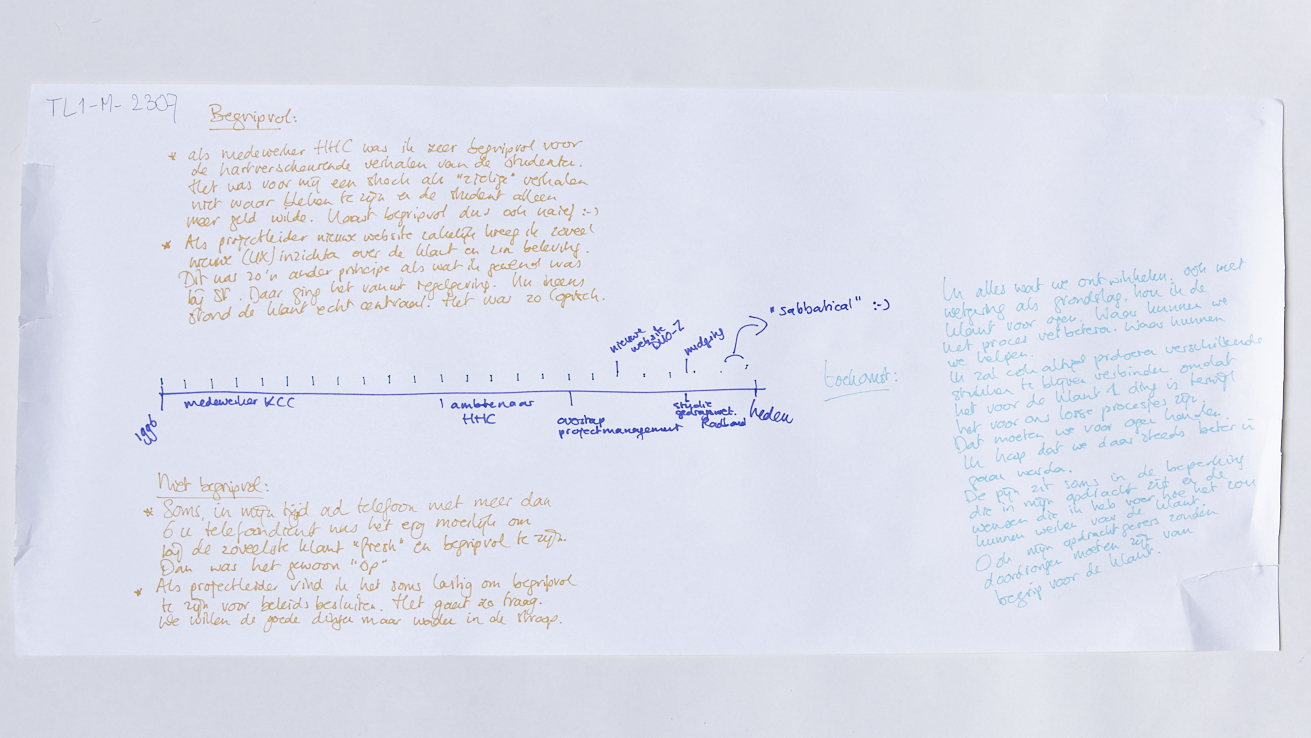 TL1-M-2307
Begripvol:
* als medewerker HHC was ik zeer begripvol voor
de hartverscheurende verhalen van de studenten.
Het was voor mij een shock als "zielige" verhalen
niet waar bleken te zijn en de student alleen
meer geld wilde. Naast begripvol dus ook naïef :-)
* Als projectleider nieuwe website zakelijk kreeg ik zoveel
nieuwe (UX) inzichten over de klant en zijn beleving.
Dit was zo'n ander principe als wat ik gewend was
bij SF. Daar ging het vanuit regelgeving. Nu ineens
stond de klant echt centraal. Het was zo logisch.
"sabbatical" :-)
nieuwe
website
DUO-Z
nudging
1996
medewerker KCC
ambtenaar
HHC
overstap
projectmanagement
studie
gedragswet.
Radboud
heden
Niet begripvol:
* Soms, in mijn tijd ad telefoon met meer dan
6 u telefoondienst was het erg moeilijk om
bij de zoveelste klant "fresh" en begripvol te zijn.
Dan was het gewoon "op"
* Als projectleider vind ik het soms lastig om begripvol
te zijn voor beleids besluiten. Het gaat zo traag.
We willen de goede dingen maar worden in de stroop.
toekomst:
In alles wat we ontwikkelen, ook met
wetgeving als grondslag, hou ik de
klant voor ogen. Waar kunnen we
het proces verbeteren. Waar kunnen
we helpen.
Ik zal ook altijd proberen verschillende
stukken te blijven verbinden omdat
het voor de klant 1 ding is terwijl
het voor ons losse processen zijn.
Dat moeten we voor ogen houden.
Ik hoop dat we daar steeds beter in
gaan worden.
De pijn zit soms in de beperking
die in mijn opdracht zit en de
wensen die ik heb voor hoe het zou
kunnen werken voor de klant.
Ook mijn opdrachtgevers zouden
doordrongen moeten zijn van
begrip voor de klant.